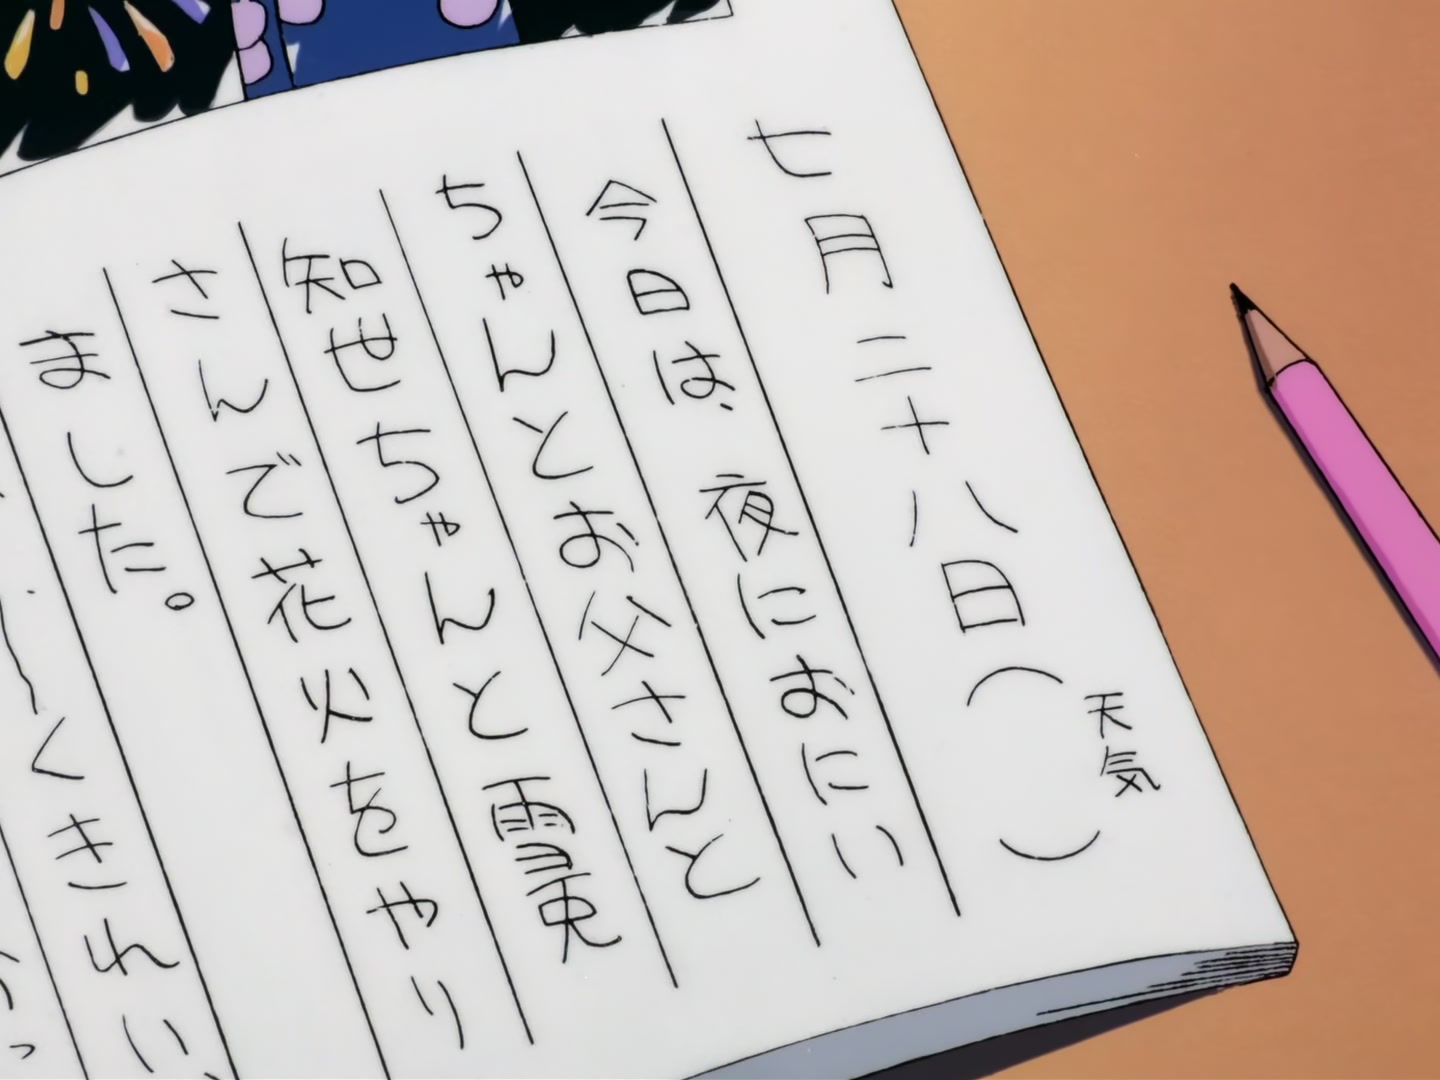 七月二十八日(天気　)
今日は、夜におにい
ちゃんとお父さんと
知世ちゃんと雪兎
さんで花火をやり
ました。